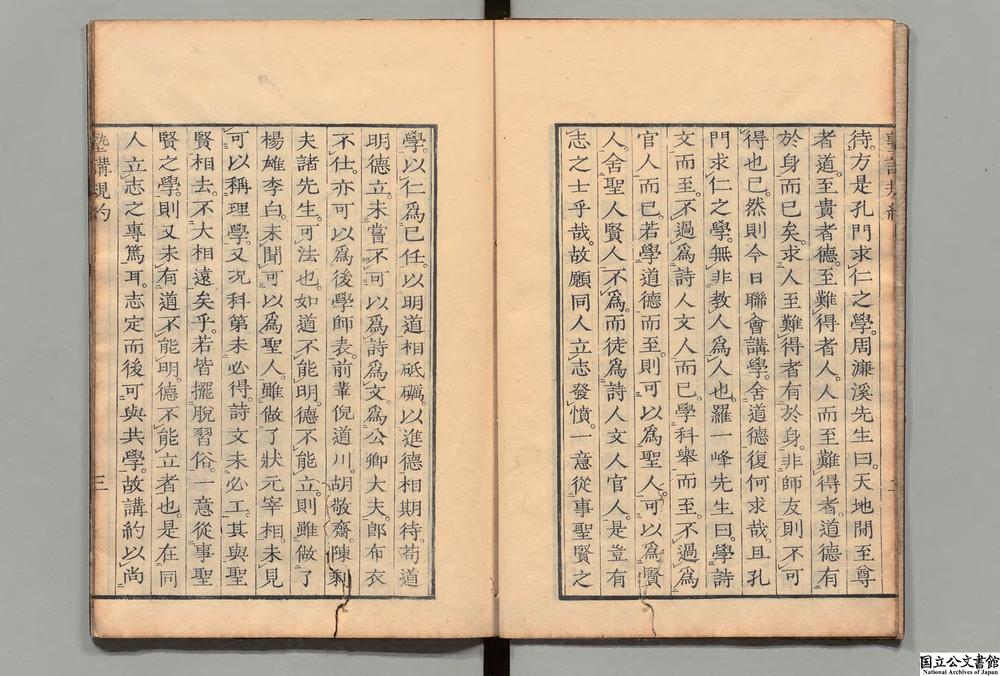 待。方是孔門求仁之學。周濂溪先生曰。天地閒至尊
者道。至貴者德。至難得者人。人而至難得者。道德有
於身而已矣。求人至難得者有於身。非師友則不可
得也已。然則今日聯會講學。舍道德復何求哉。且孔
門求仁之學。無非教人爲人也。羅一峰先生曰。學詩
文而至。不過爲詩人文人而已。學科舉而至。不過爲
官人而已。若學道德而至。則可以爲聖人。可以爲賢
人。舍聖人賢人不爲。而徒爲詩人文人官人。是豈有
志之士乎哉。故願同人立志發憤。一意從事聖賢之
學。以仁爲己任。以明道相砥礪。以進德相期待。苟道
明德立。未嘗不可以爲詩爲文。爲公卿大夫。郎布衣
不仕。亦可以爲後學師表。前輩倪道川。胡敬齋。陳剩
夫諸先生。可法也。如道不能明。德不能立。則雖做了
楊雄李白。未聞可以爲聖人。雖做了狀元宰相。未見
可以稱理學。又况科第未必得。詩文未必工。其與聖
賢相去。不大相遠矣乎。若皆擺脫習俗。一意從事聖
賢之學。則又未有道不能明。德不能立者也。是在同
人立志之專篤耳。志定而後可與共學。故講約以尚
塾講規約 三
国立公文書館
National Archives of Japan